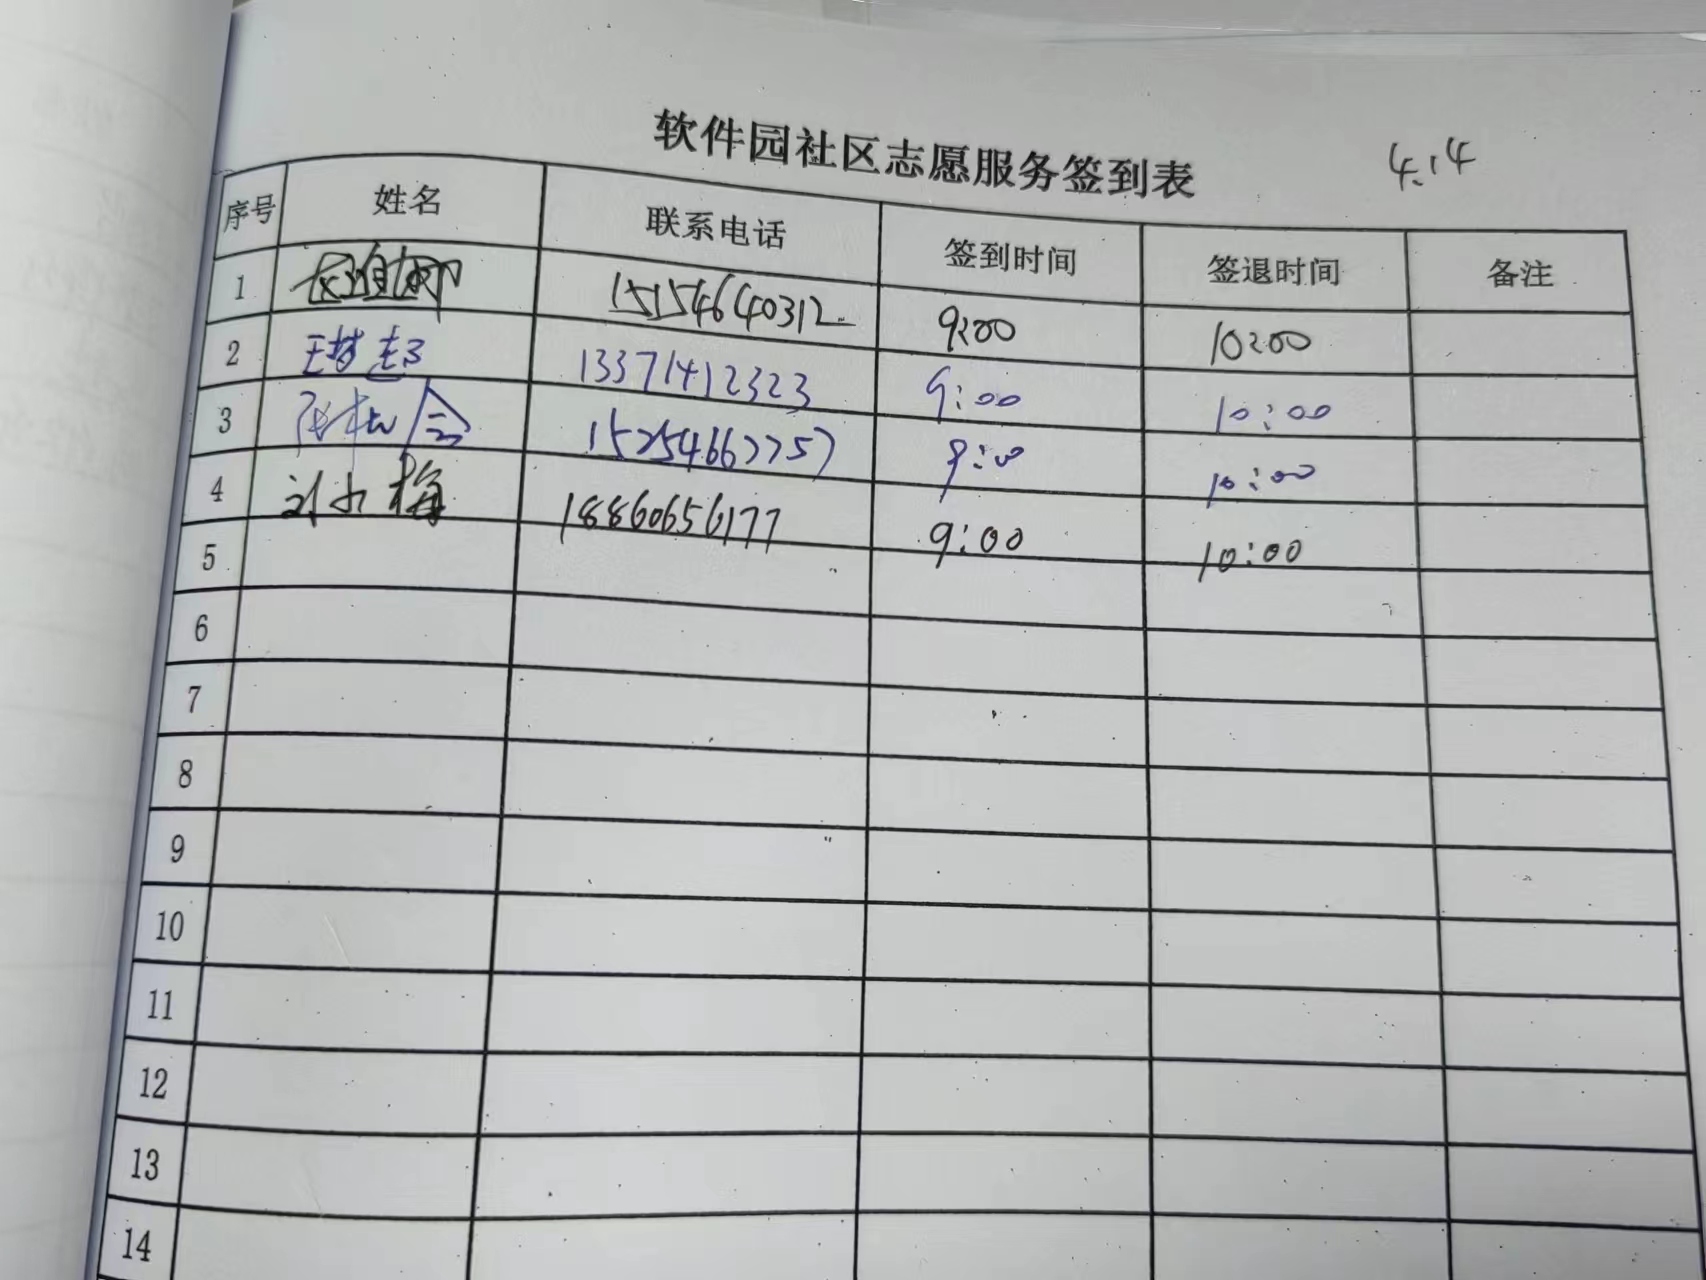 软件园社区志愿服务签到表 4.14
序号 姓名 联系电话 签到时间 签退时间 备注
1 15154640312 9:00 10:00
2 13371412323 9:00 10:00
3 9:00 10:00
4 刘小梅 18860656177 9:00 10:00
5
6
7
8
9
10
11
12
13
14